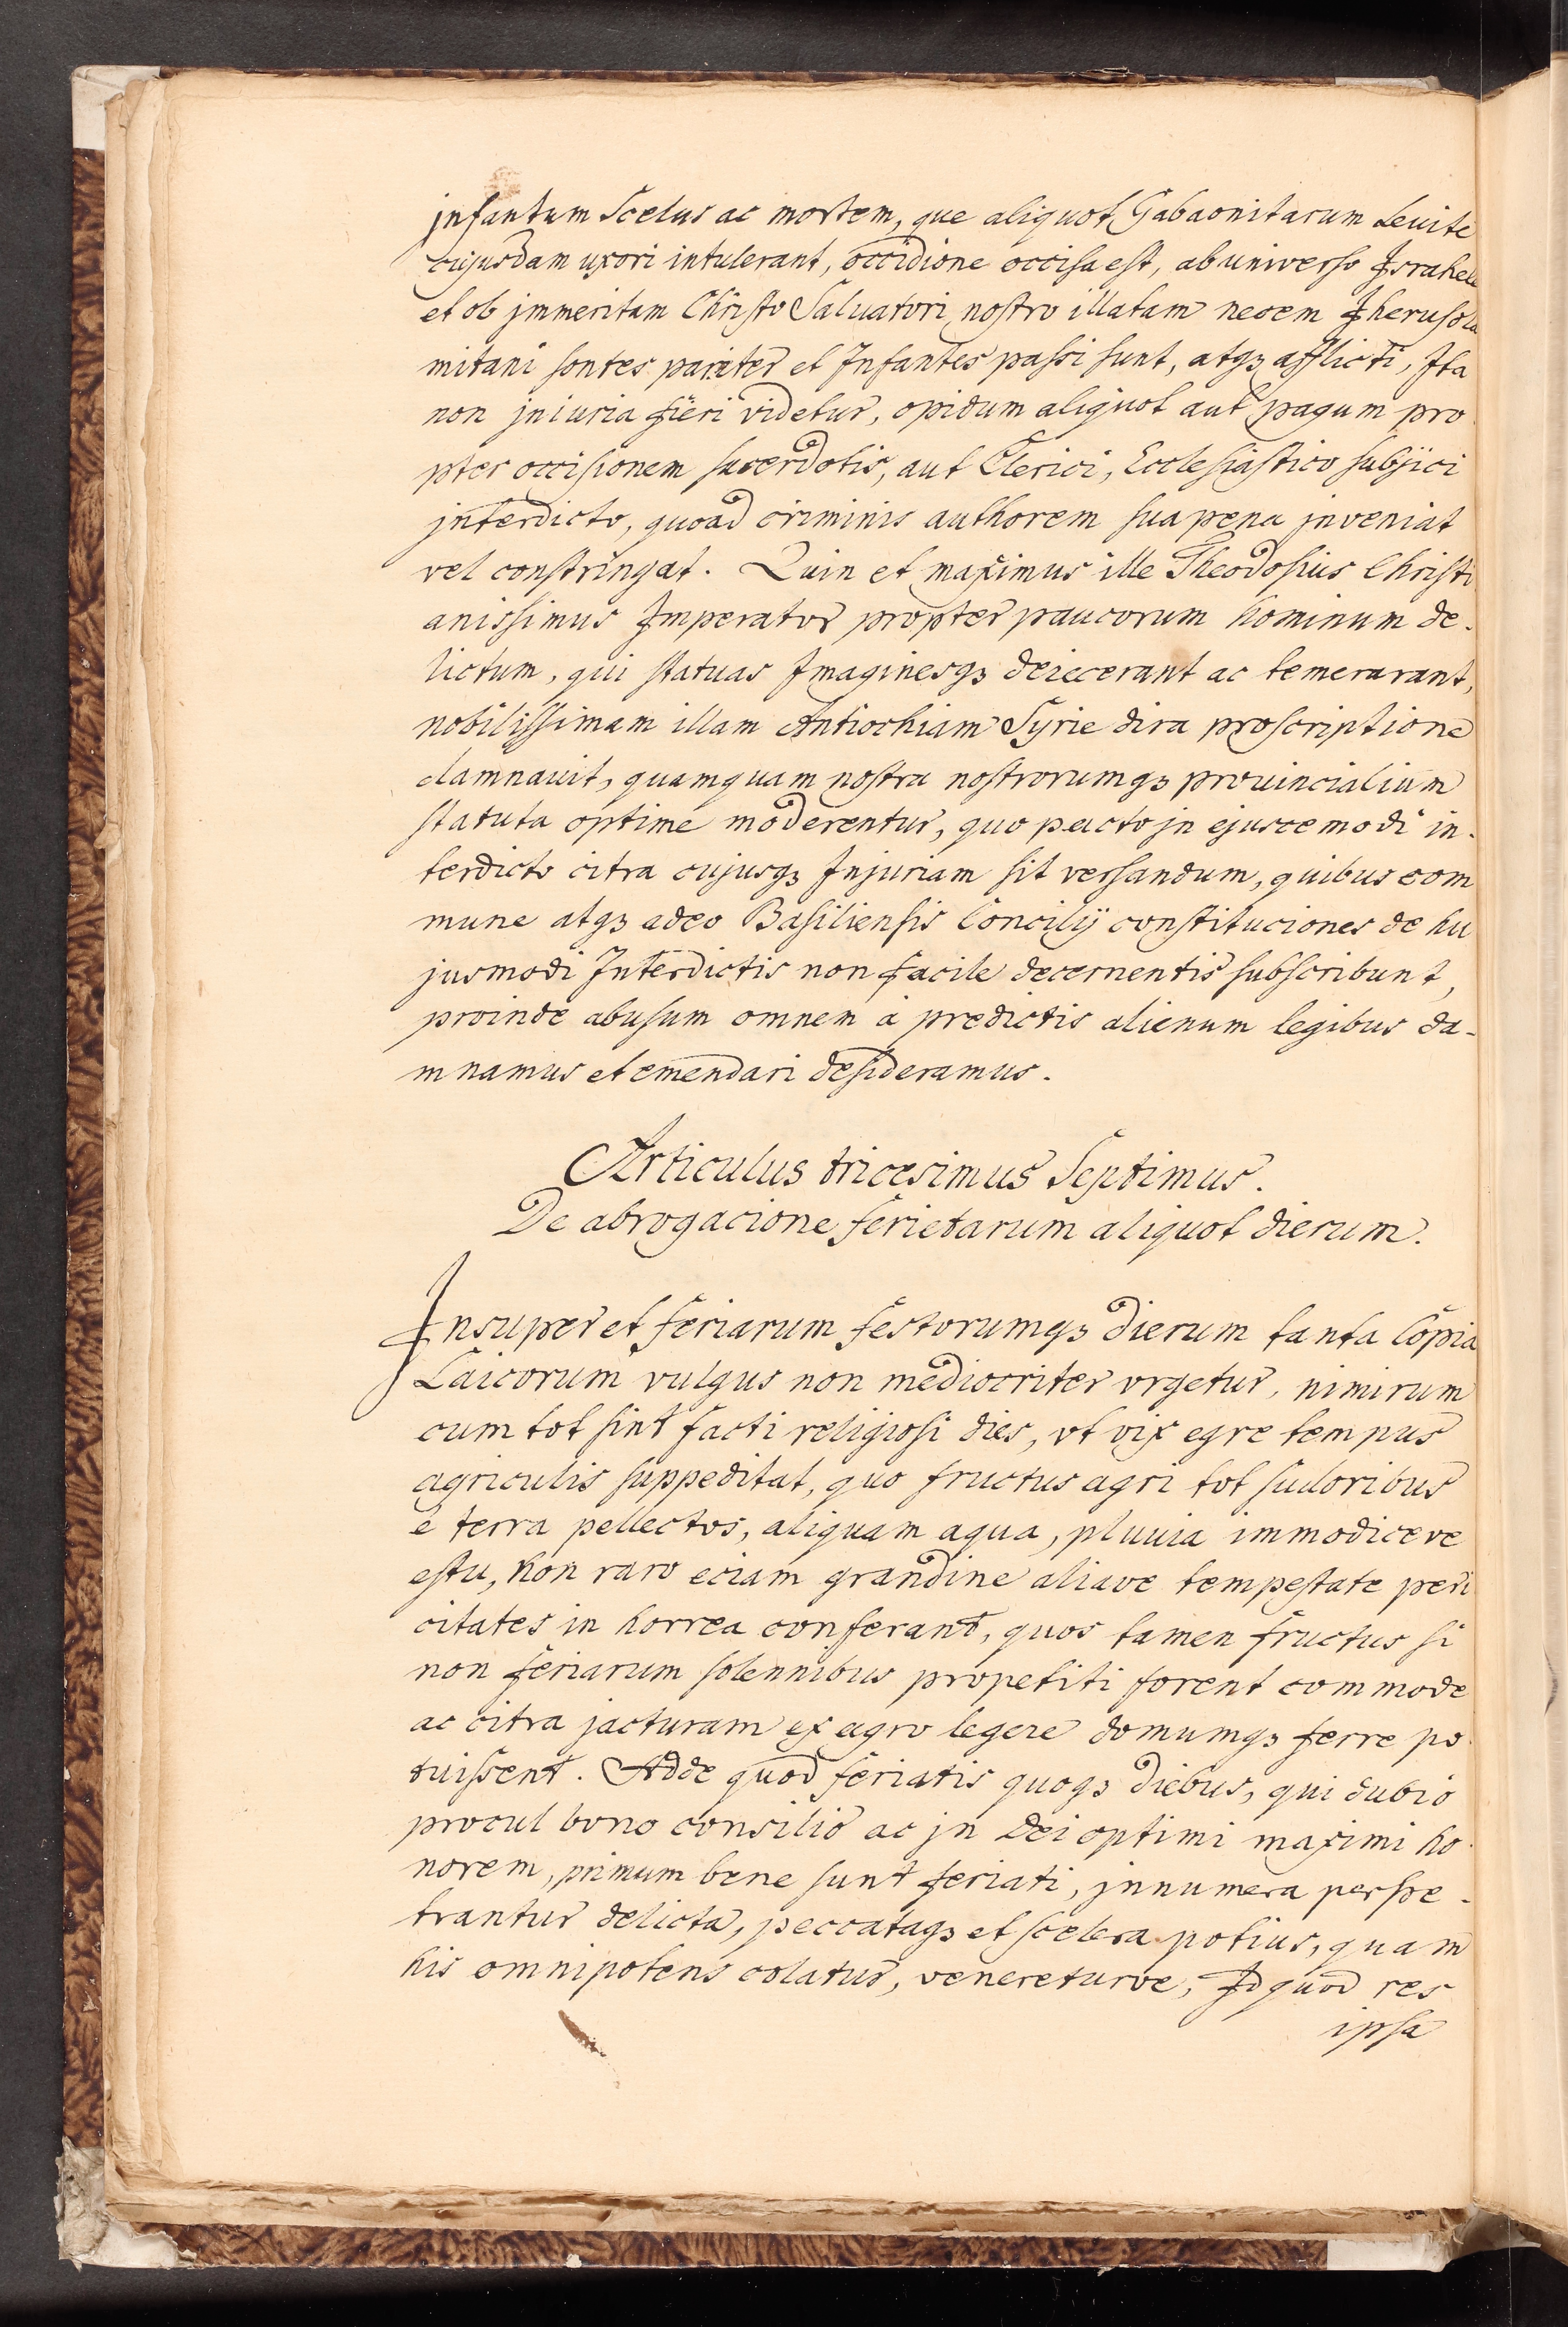 jnfantum Scelus ac mortem, que aliquot Gabaonitarum Leuite
cujusdam uxori intulerant, occidione occisa est, ab universo Israhele
et ob jmmeritam Christo Salvatori nostro illatam necem Iherusola
mitani sontes pariter et Infantes passi sunt, atqꝫ afflicti, Ita
non jniuria fieri videtur, opidum aliquot aut pagum pro
pter occisionem sacerdotis, aut Clerici, Ecclesiastico subijci
jnterdicto, quoad criminis authorem sua pena jnveniat
vel constringat. Quin et maximus ille Theodosius Christi
anissimus Imperator propter paucorum hominum de-
lictum, qui statuas Imaginesqꝫ deiecerant ac temerarant,
nobilissimam illam Antiochiam Syrie dira proscriptione
damnauit, quamquam nostra nostrorumqꝫ prouincialium
statuta optime moderentur, quo pacto jn ejuscemodi in-
terdicto citra cujusqꝫ Injuriam sit versandum, quibus com
mune atqꝫ adeo Basiliensis Concilij constituciones de hu
jusmodi Interdictis non facile decernentis subscribunt,
proinde abusum omnem a predictis alienum legibus da-
mnamus et emendari desideramus.
Articulus tricesimus Septimus.
De abrogacione ferietarum aliquot dierum.
Insuper et feriarum festorumqꝫ dierum tanta Copia
Laicorum vulgus non mediocriter vrgetur, nimirum
cum tot sint facti religiosi dies, vt vix egre tempus
agriculis suppeditat, quo fructus agri tot sudoribus
e terra pellectos, aliquam aqua, pluuia immodiceve
estu, non raro eciam grandine aliave tempestate peri
citates in horrea conferant, quos tamen fructus si
non feriarum solennibus propetiti forent commode
ac citra jacturam ex agro legere domumqꝫ ferre po
tuissent. Adde quod feriatis quoqꝫ diebus, qui dubio
procul bono consilio ac jn Dei optimi maximi ho
norem, primum bene sunt feriati, jnnumera perpe-
trantur delicta, peccataqꝫ et scelera potius, quam
his omnipotens colatur, venereturve, Id quod res
ipsa